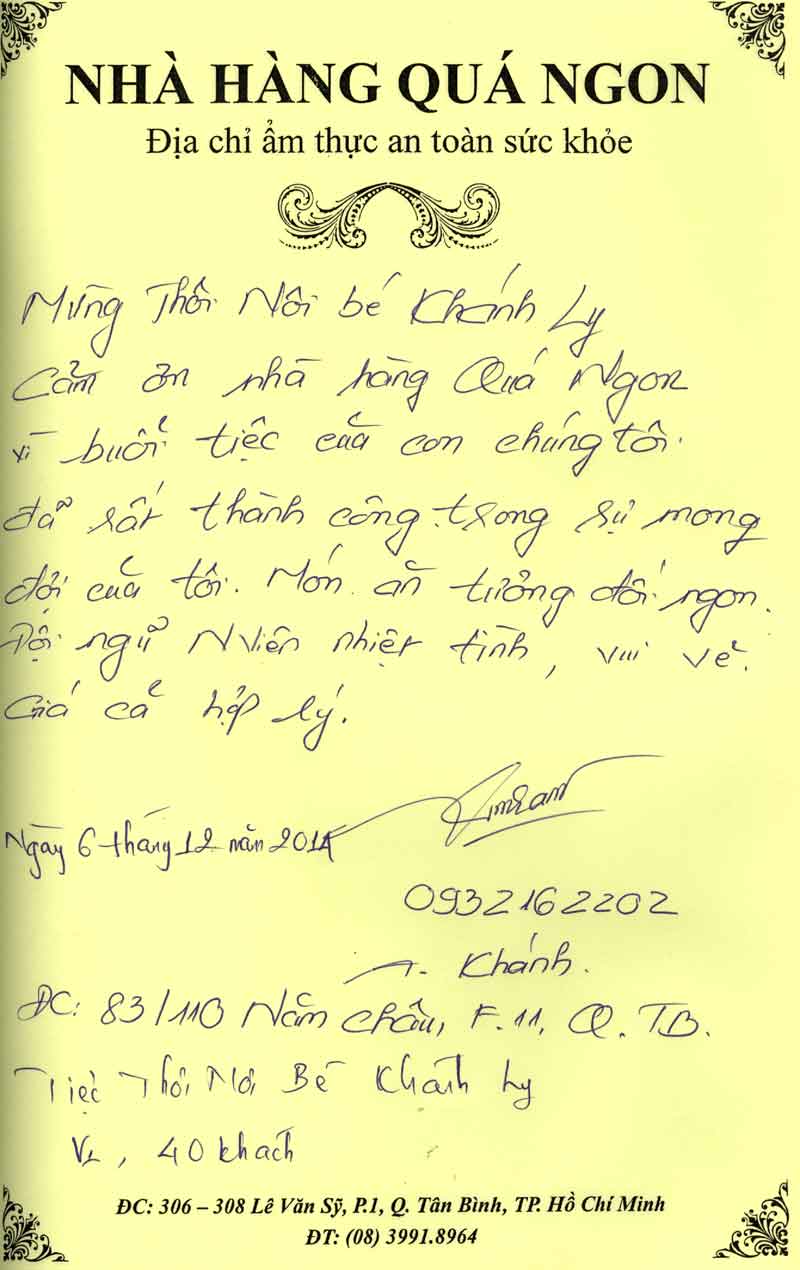 NHÀ HÀNG QUÁ NGON
Địa chỉ ẩm thực an toàn sức khỏe
Mừng Thôi Nôi bé Khánh Ly
Cảm ơn nhà hàng Quá Ngon
vì buổi tiệc của con chúng tôi.
đã rất thành công trong sự mong
đợi của tôi. Món ăn tương đối ngon.
Đội ngũ Nviên nhiệt tình, vui vẻ.
Giá cả hợp lý.
Ngày 6 tháng 12 năm 2014
0932162202
Khánh.
ĐC: 83/110 Năm Châu, F.11, Q.TB.
Tiệc Thôi Nôi Bé Khánh Ly
40 khách
ĐC: 306 – 308 Lê Văn Sỹ, P.1, Q. Tân Bình, TP. Hồ Chí Minh
ĐT: (08) 3991.8964